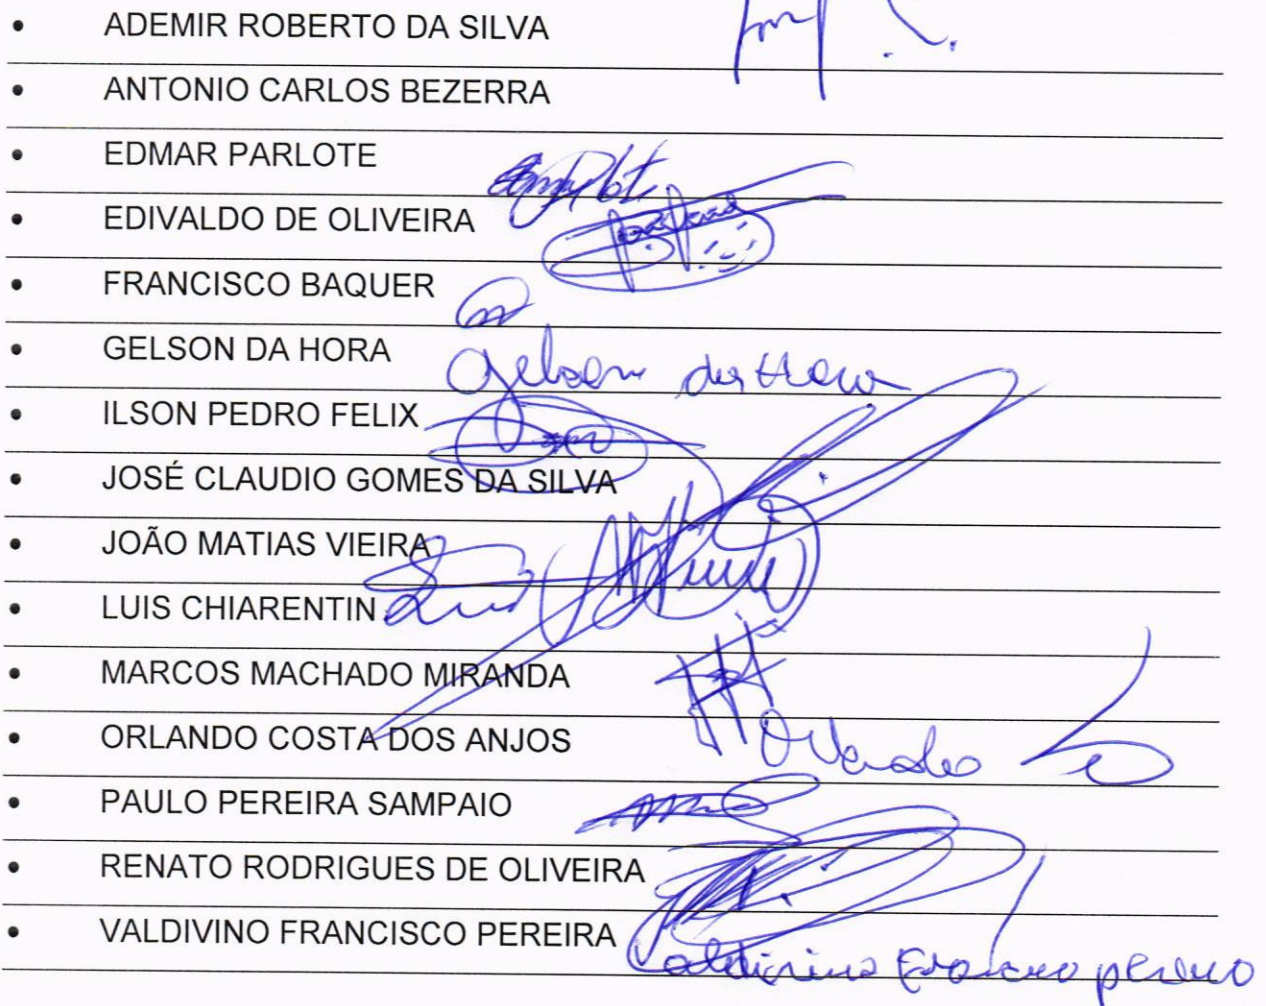 • ADEMIR ROBERTO DA SILVA
• ANTONIO CARLOS BEZERRA
• EDMAR PARLOTE
• EDIVALDO DE OLIVEIRA
• FRANCISCO BAQUER
• GELSON DA HORA Gelson da Hora
• ILSON PEDRO FELIX
• JOSÉ CLAUDIO GOMES DA SILVA
• JOÃO MATIAS VIEIRA
• LUIS CHIARENTIN Luis
• MARCOS MACHADO MIRANDA
• ORLANDO COSTA DOS ANJOS Orlando
• PAULO PEREIRA SAMPAIO
• RENATO RODRIGUES DE OLIVEIRA
• VALDIVINO FRANCISCO PEREIRA
Valdivino Francisco pereira